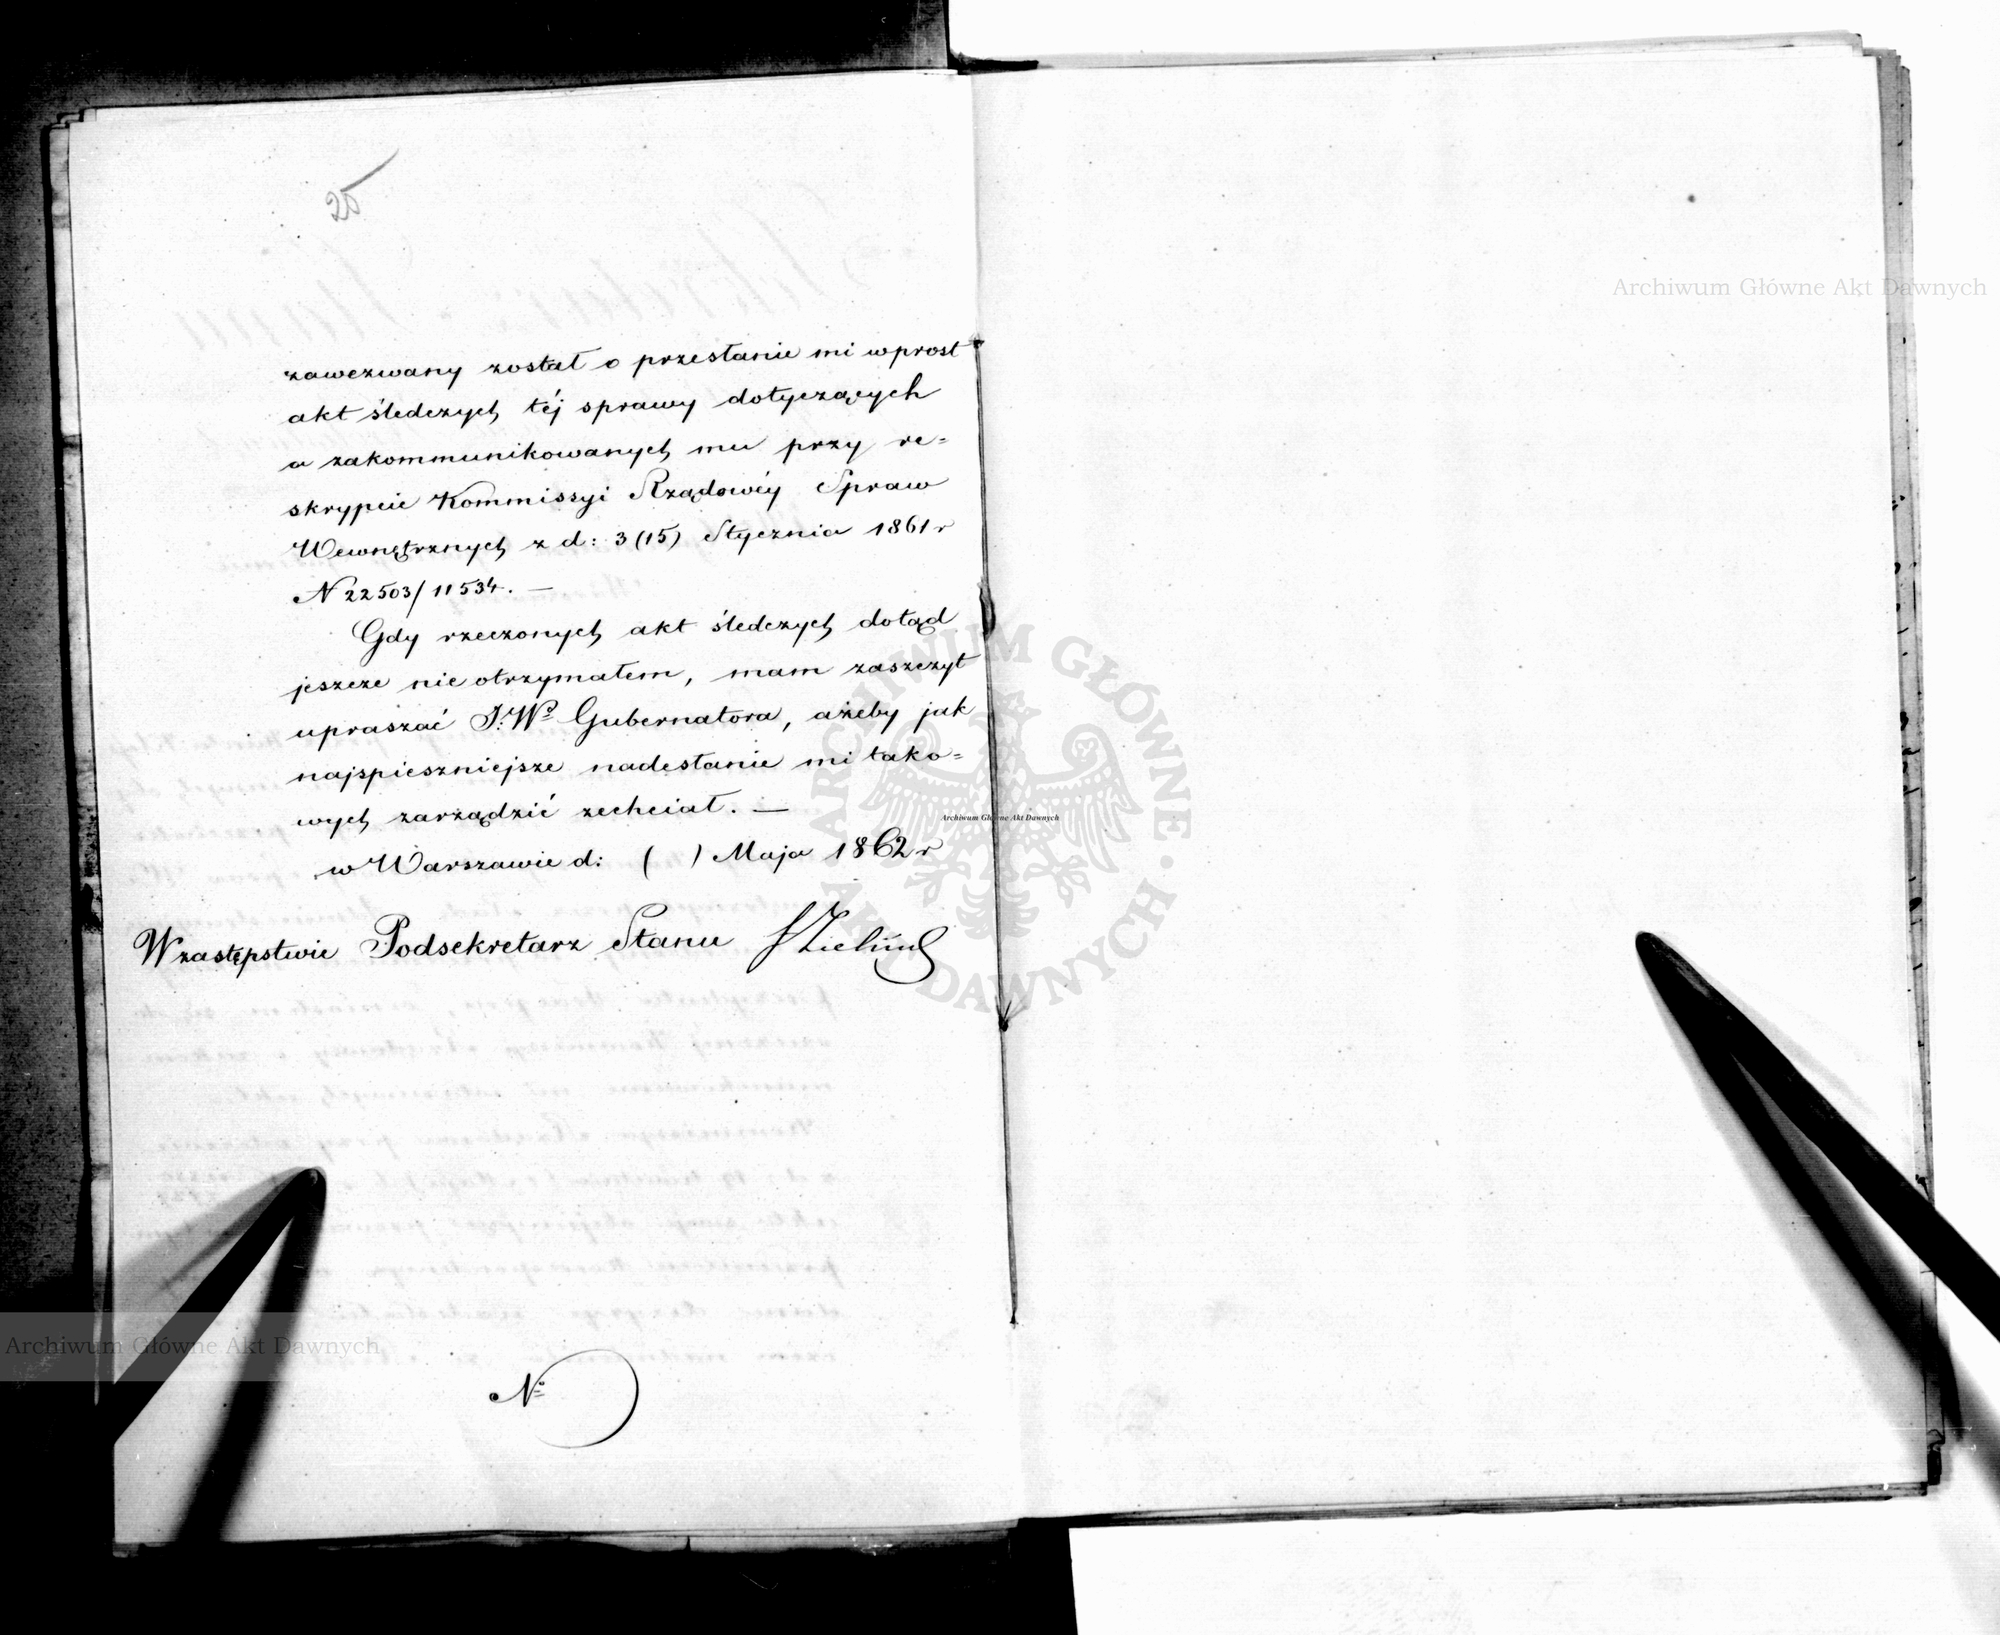 25
zawezwany został o przesłanie mi wprost
akt śledczych téj sprawy dotyczących
a zakommunikowanych mu przy re=
skrypcie Kommissyi Rządowéy Spraw
Wewnętrznych z d: 3 (15) Stycznia 1861 r
N 22503/11534. —
Gdy rzeczonych akt śledczych dotąd
jeszcze nie otrzymałem, mam zaszczyt
upraszać J.Wo Gubernatora, ażeby jak
najspieszniejsze nadesłanie mi tako=
wych zarządzić zechciał. —
w Warszawie d: ( ) Maja 1862 r
W zastępstwie Podsekretarz Stanu
No
Archiwum Główne Akt Dawnych
Archiwum Główne Akt Dawnych
Archiwum Główne Akt Dawnych
ARCHIWUM GŁÓWNE AKT DAWNYCH